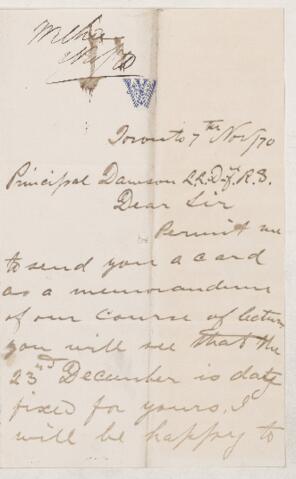 Toronto 7th Nov/70
Principal Dawson LL.D. F.R.S.
Dear Sir
Permit me
to send you a card
as a memorandum
of our course of lectures
you will see that the
23rd December is date
fixed for yours. I
will be happy to